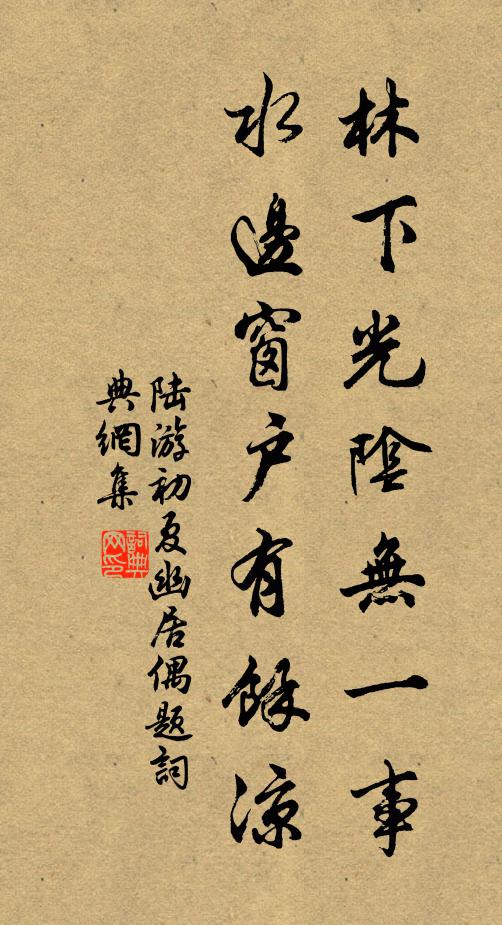 林下光陰無一事
水邊窗戶有餘涼
陆游初夏幽居偶题詞
典網集
詞典
网印